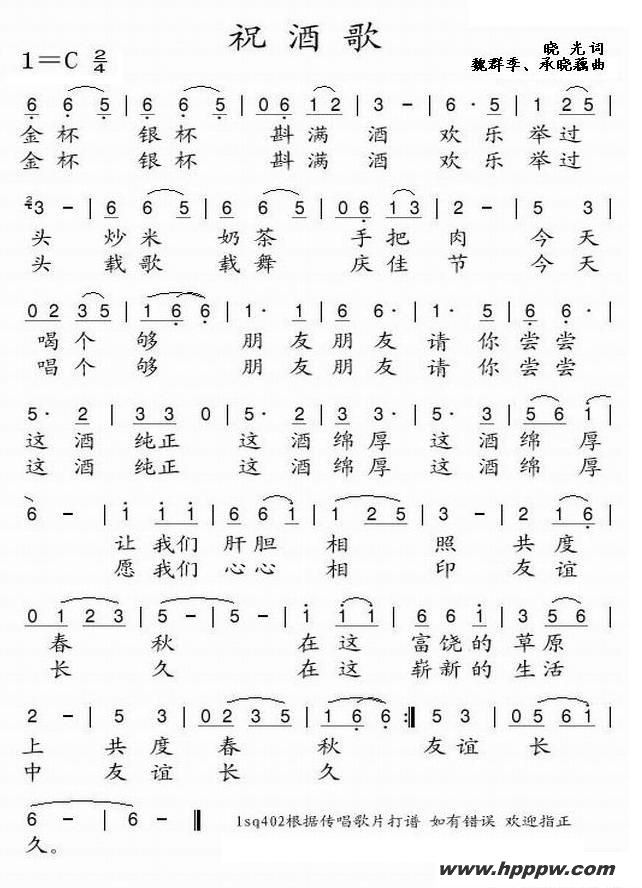 祝酒歌
1=C 2/4
晓光词
魏群季、承晓藕曲
6 6 5 | 6 6 5 | 0 6 1 2 | 3 - | 6· 5 | 1 2 5 |
金杯 银杯 斟满 酒 欢乐举过
金杯 银杯 斟满 酒 欢乐举过
3 - | 6 6 5 | 6 6 5 | 0 6 1 3 | 2 - | 5 3 |
头 炒米 奶茶 手把 肉 今天
头 载歌 载舞 庆佳 节 今天
0 2 3 5 | 1 6 6 | 1· 1 | 6 6· | 1· 5 | 6 6· |
喝个 够 朋友朋友请你尝尝
唱个 够 朋友朋友请你尝尝
5· 2 | 3 3 0 | 5· 2 | 5· 3 | 5· 3 | 5 6 1 |
这酒 纯正 这酒绵厚 这酒绵厚
这酒 纯正 这酒绵厚 这酒绵厚
6 - | 1 1 1 | 6 6 1 | 1 2 5 | 3 - | 2 1 6 |
让我们 肝胆 相 照 共度
愿我们 心心 相 印 友谊
0 1 2 3 | 5 - | 5 - | 1 1 1 | 6 6 1 | 3 5 6 |
春 秋 在这 富饶的草原
长 久 在这 崭新的生活
2 - | 5 3 | 0 2 3 5 | 1 6 6 :‖ 5 3 | 0 5 6 1 |
上 共度 春 秋 友谊 长
中 友谊 长 久
6 - | 6 - ‖ 1sq402根据传唱歌片打谱 如有错误 欢迎指正
久。
www.hpppw.com